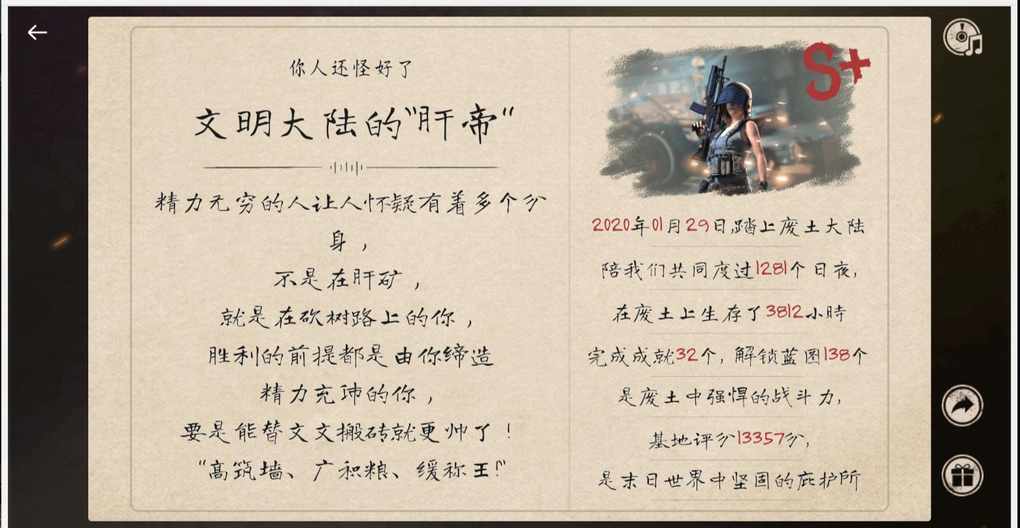 你人还怪好了
文明大陆的"肝帝"
精力无穷的人让人怀疑有着多个分
身，
不是在肝矿，
就是在砍树路上的你，
胜利的前提都是由你缔造
精力充沛的你，
要是能替文文搬砖就更帅了！
"高筑墙、广积粮、缓称王!"
S+
2020年01月29日,踏上废土大陆
陪我们共同度过1281个日夜,
在废土上生存了3812小時
完成成就32个, 解锁蓝图138个
是废土中强悍的战斗力,
基地评分13357分,
是末日世界中坚固的庇护所